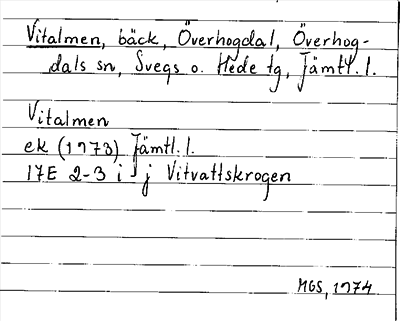 Vitalmen, bäck, Överhogdal, Överhog-
dals sn, Svegs o. Hede tg, Jämtl. l.
Vitalmen
ek (1973) Jämtl. l.
17E 2-3 i-j Vitvattskrogen
MGS, 1974